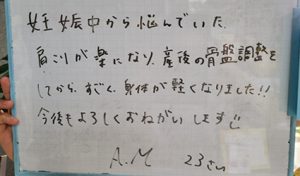 妊娠中から悩んでいた
肩こりが楽になり、産後の骨盤調整を
してから、すごく身体が軽くなりました!!
今後もよろしくおねがいします
A.M 23さい